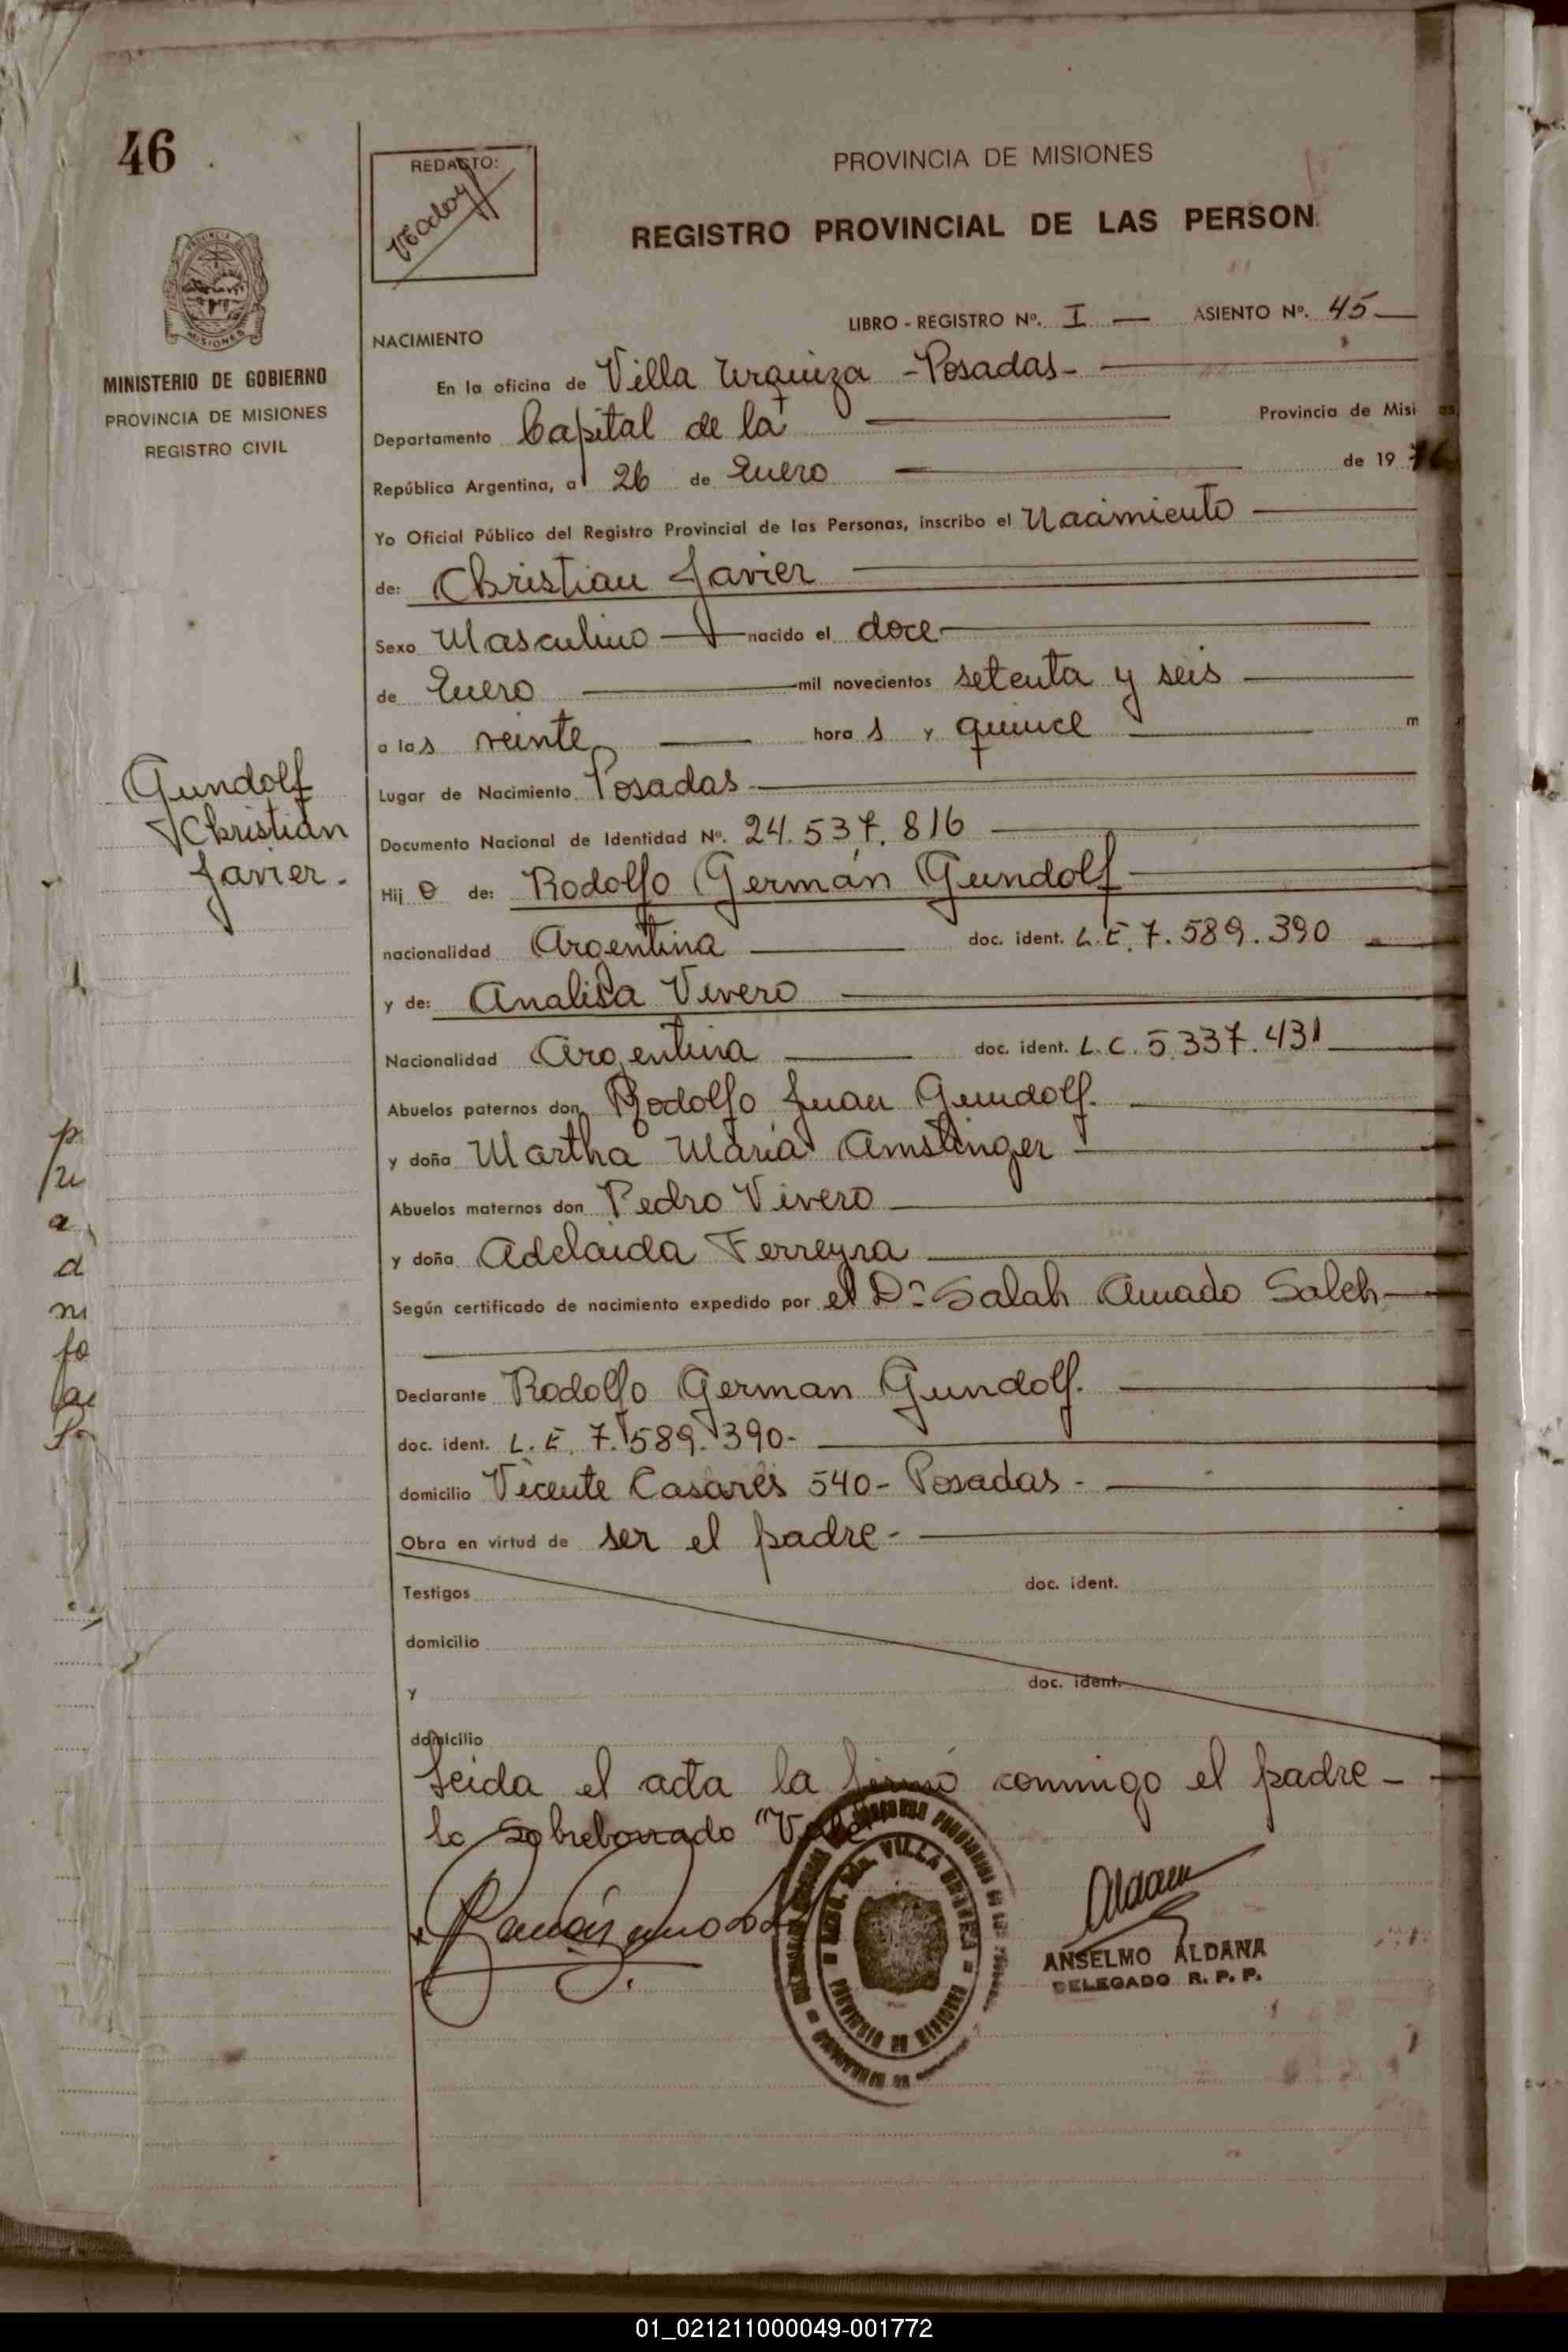 46
REDACTO:
PROVINCIA DE MISIONES
REGISTRO PROVINCIAL DE LAS PERSON
MINISTERIO DE GOBIERNO
PROVINCIA DE MISIONES
REGISTRO CIVIL
LIBRO - REGISTRO Nº. I — ASIENTO Nº. 45 —
NACIMIENTO
En la oficina de Villa Urquiza - Posadas -
Departamento Capital de la Provincia de Misi es,
República Argentina, a 26 de Enero de 19 76
Yo Oficial Público del Registro Provincial de las Personas, inscribo el Nacimiento
de: Christian Javier
Sexo Masculino nacido el doce
de Enero mil novecientos setenta y seis
a las veinte hora s y quince m
Lugar de Nacimiento Posadas
Documento Nacional de Identidad Nº. 24.537.816
Gundolf
Christian
Javier.
Hij o de: Rodolfo Germán Gundolf
nacionalidad Argentina doc. ident. L.E. 7.589.390
y de: Analisa Vivero
Nacionalidad Argentina doc. ident. L.C. 5.337.431
Abuelos paternos don Rodolfo Juan Gundolf.
y doña Martha María Amstinger
Abuelos maternos don Pedro Vivero
y doña Adelaida Ferreyra
Según certificado de nacimiento expedido por el Dr Salah Amado Saleh
Declarante Rodolfo German Gundolf.
doc. ident. L.E. 7.589.390-
domicilio Vicente Casares 540- Posadas -
Obra en virtud de ser el padre -
Testigos doc. ident.
domicilio
y doc. ident.
domicilio
Leida el acta la firmó conmigo el padre -
lo sobreborrado "Vale"
VILLA URQUIZA
PROVINCIA DE MISIONES
ANSELMO ALDANA
DELEGADO R. P. P.
01_021211000049-001772